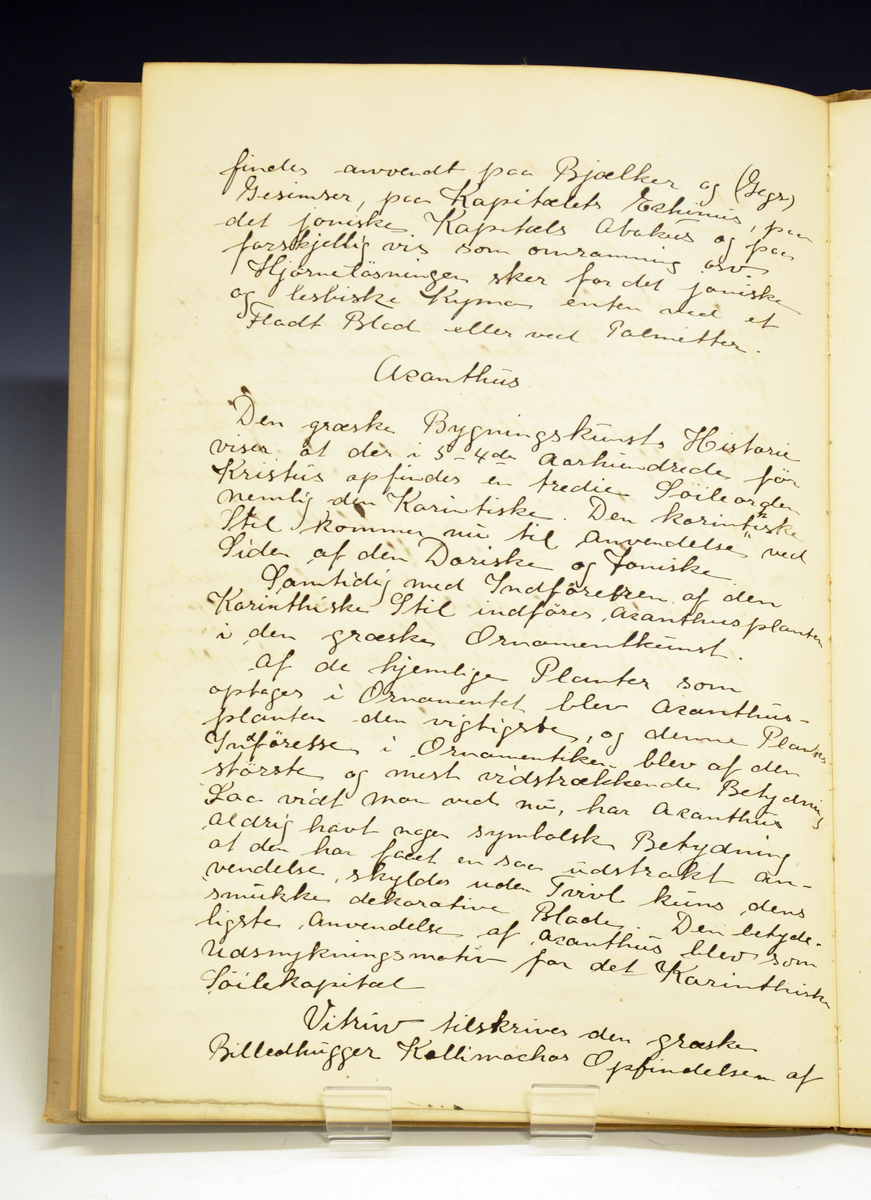 findes anvendt paa Bjælker og (Gegs)
Gesimser, paa Kapitælets Echinus, paa
det joniske Kapitæls Abakus og paa
forskjellig vis som omramning osv.
Hjørneløsningen sker for det joniske
og lesbiske Kyma enten ved et
Fladt Blad eller ved Palmetter.
Acanthus
Den græske Bygningskunsts Historie
viser at der i 5-4de Aarhundrede før
Kristus opfindes en tredie Søileorden
nemlig den Korintiske. Den korintiske
Stil kommer nu til Anvendelse ved
Siden af den Doriske og Joniske
Samtidig med Indføreren af den
Korinthiske Stil indføres Acanthusplanten
i den græske Ornamentkunst.
Af de hjemlige Planter som
optages i Ornamentet blev Acanthus-
planten den vigtigste, og denne Plantes
Indførelse i Ornamentiken blev af den
største og mest vidstrækkende Betydning
Saa vidt man ved nu, har Acanthus
aldrig havt nogen symbolsk Betydning
at den har faaet en saa udstrakt An-
vendelse, skyldes uden Tvivl kuns dens
smukke dekorative Blade. Den betyde-
ligste Anvendelse af Acanthus blev som
Udsmykningsmotiv for det Korinthiske
Søilekapitæl
Vitruv tilskriver den græske
Billedhugger Kallimachos Opfindelsen af